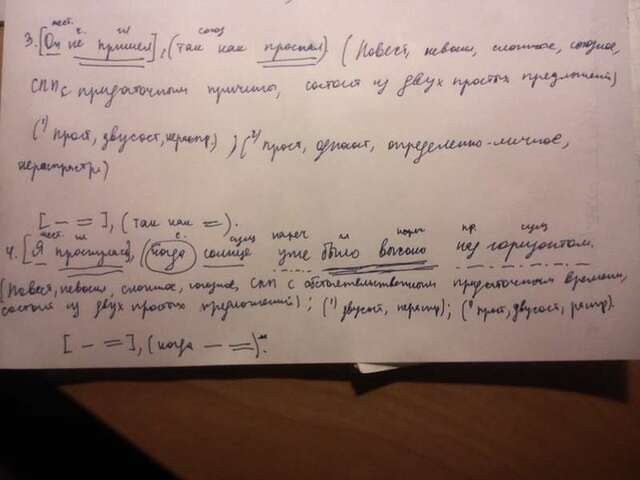 мест. ч. гл союз
3. [Он не пришел], (так как проспал). (Повест, невоскл, сложное, союзное,
СПП с придаточным причины, состоит из двух простых предложений)
(¹⁾ прост, двусост, нераспр.) ; (²⁾ прост, односост, определенно-личное,
нераспростр.)
[ — = ], (так как = ).
мест. гл с. сущ нареч гл нареч пр. сущ
4. [Я проснулась], (когда солнце уже было высоко над горизонтом.
(Повест, невоскл, сложное, союзное, СПП с обстоятельственным придаточным времени,
состоит из двух простых предложений) ; (¹⁾ двусост, нераспр); (²⁾ прост, двусост, распр).
[ — = ], (когда — = ).